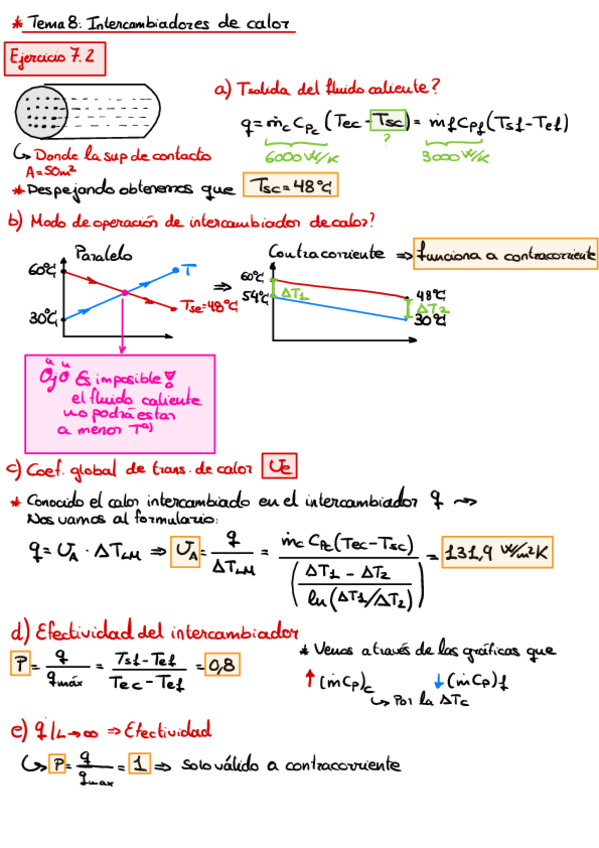 * Tema 8: Intercambiadores de calor
Ejercicio 7.2
a) Tsalida del fluido caliente?
q = ṁc Cpc (Tec - Tsc) = ṁf Cpf (Tsf - Tef)
?
6000 W/K
3000 W/K
↳ Donde la sup de contacto
A = 50m²
* Despejando obtenemos que Tsc = 48ºC
b) Modo de operación de intercambiador de calor?
Paralelo
60ºC
30ºC
T
Tse = 48ºC
⇒
Contracorriente ⇒ funciona a contracorriente
60ºC
54ºC
ΔT1
48ºC
ΔT2
30ºC
Ojo Es imposible!
el fluido caliente
no podrá estar
a menor Tª)
c) Coef. global de trans. de calor Ue
* Conocido el calor intercambiado en el intercambiador q ⇝
Nos vamos al formulario:
q = UA · ΔTLM ⇒ UA = q / ΔTLM = ṁc Cpc (Tec - Tsc) / ((ΔT1 - ΔT2) / ln (ΔT1/ΔT2)) = 131,9 W/m²K
d) Efectividad del intercambiador
P = q / qmáx = Tsf - Tef / Tec - Tef = 0,8
* Vemos a través de las gráficas que
↑ (ṁCp)c ↓ (ṁCp)f
↳ Por la ΔTc
e) q|L→∞ ⇒ Efectividad
↳ P = q / qmax = 1 ⇒ Solo válido a contracorriente